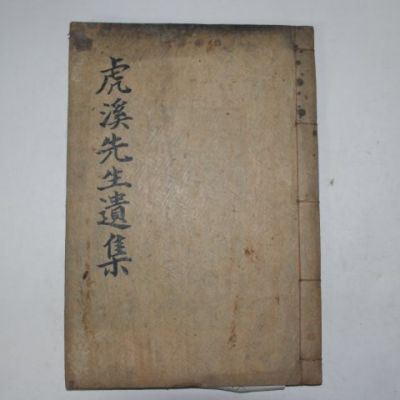 虎溪先生遺集